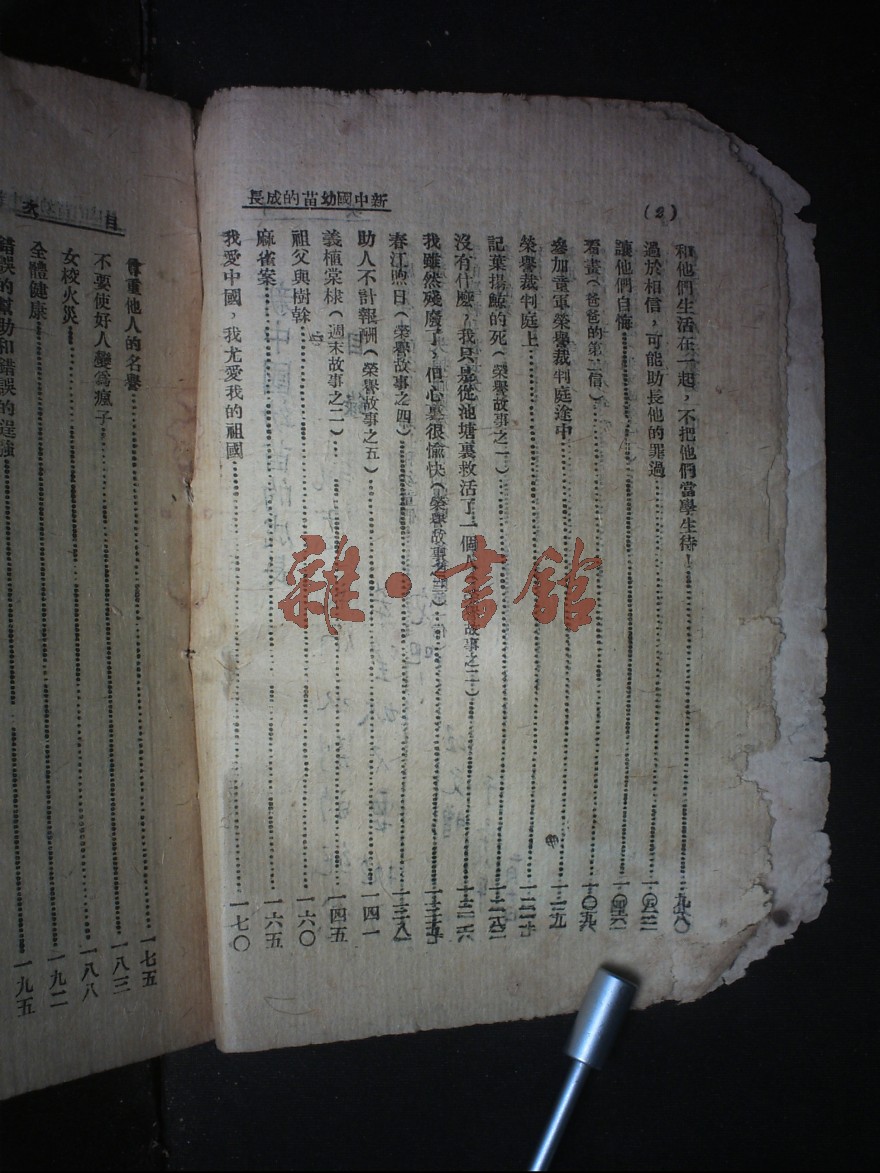 新中國幼苗的成長
(2)
和他們生活在一起，不把他們當學生待！
過於相信，可能助長他的罪過
讓他們自悔
看畫（爸爸的第二信）
參加童軍榮譽裁判庭途中
榮譽裁判庭上
記葉揚鯨的死（榮譽故事之一）
沒有什麼，我只是從池塘裏救活了一個 故事之二）
我雖然殘廢了，但心裏很愉快（榮譽故事之三）
春江煦日（榮譽故事之四）……一三八
助人不計報酬（榮譽故事之五）……一四一
義植棠棣（週末故事之二）……一四五
祖父與樹幹……一六〇
麻雀案……一六五
我愛中國，我尤愛我的祖國……一七〇
目次
尊重他人的名譽……一七五
不要使好人變為瘋子……一八三
女校火災……一八八
全體健康……一九二
錯誤的幫助和錯誤的逞強……一九五
雜·書館